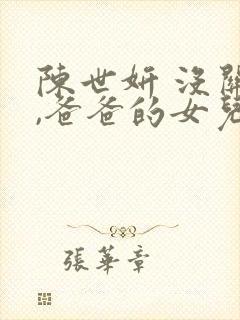 陳世妍 沒關
,爸爸的女兒
張華章